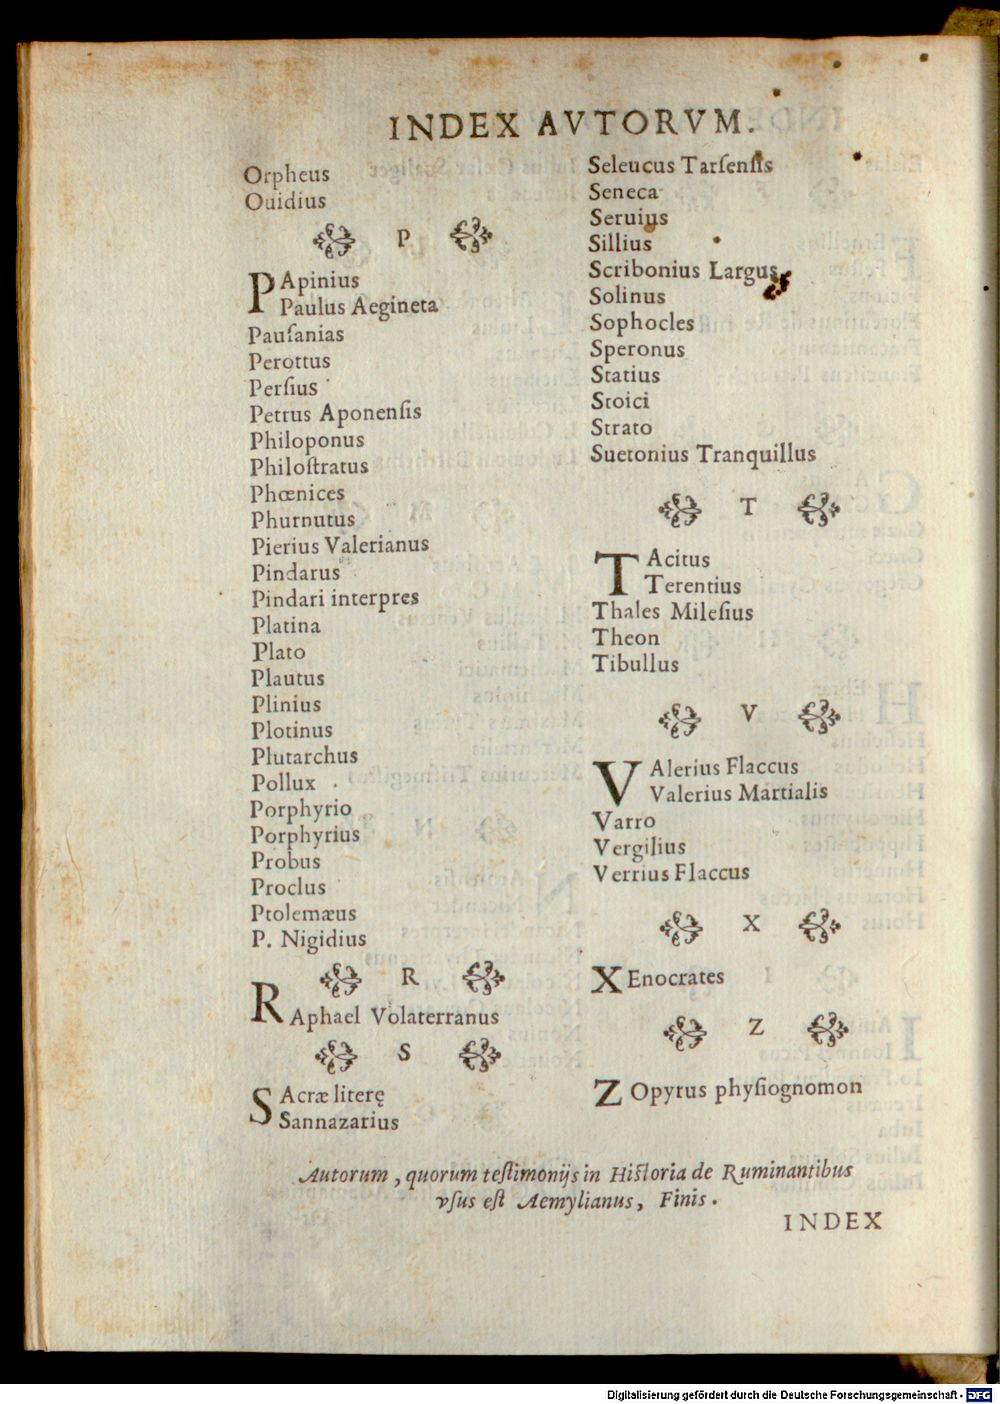 INDEX AVTORVM.
Orpheus
Ouidius
P
PApinius
Paulus Aegineta
Pauſanias
Perottus
Perſius
Petrus Aponenſis
Philoponus
Philoſtratus
Phœnices
Phurnutus
Pierius Valerianus
Pindarus
Pindari interpres
Platina
Plato
Plautus
Plinius
Plotinus
Plutarchus
Pollux
Porphyrio
Porphyrius
Probus
Proclus
Ptolemæus
P. Nigidius
R
RAphael Volaterranus
S
SAcræ literę
Sannazarius
Seleucus Tarſenſis
Seneca
Seruius
Sillius
Scribonius Largus
Solinus
Sophocles
Speronus
Statius
Stoici
Strato
Suetonius Tranquillus
T
TAcitus
Terentius
Thales Mileſius
Theon
Tibullus
V
VAlerius Flaccus
Valerius Martialis
Varro
Vergilius
Verrius Flaccus
X
XEnocrates
Z
ZOpyrus phyſiognomon
Autorum, quorum teſtimonijs in Hiſtoria de Ruminantibus
vſus eſt Aemylianus, Finis.
INDEX
Digitalisierung gefördert durch die Deutsche Forschungsgemeinschaft - DFG